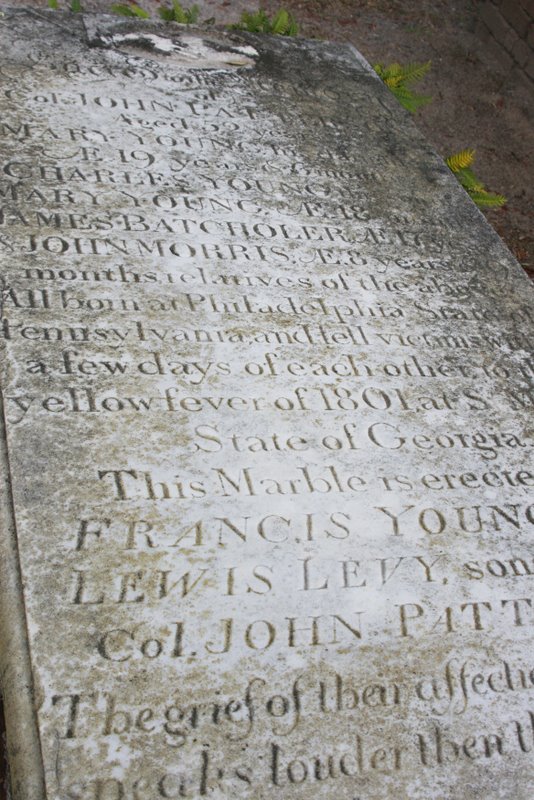 Col. JOHN PATT
Aged 55 ye
MARY YOUNG
Æ. 19 years &
CHARLES YOUNG
MARY YOUNG, Æ. 18
JAMES BATCHOLER Æ 17
& JOHN MORRIS, Æ. 8 years
months, relatives of the abo
All born at Philadelphia State of
Pennsylvania, and fell victims wi
a few days of each other, to t
yellow fever of 1801, at S. M
State of Georgia.
This Marble is erecte
FRANCIS YOUN
LEWIS LEVY, son
Col. JOHN PATT
The grief of their affectio
speaks louder then th